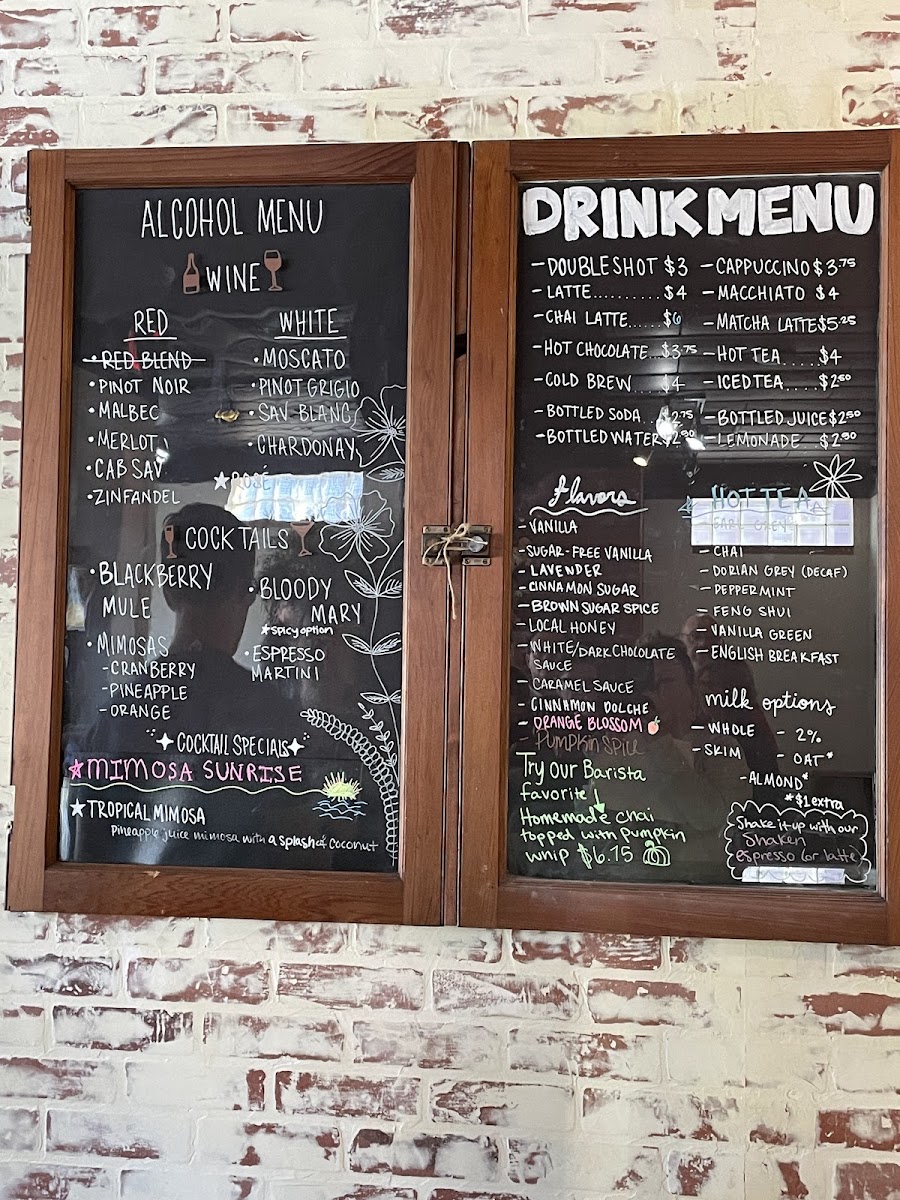 ALCOHOL MENU
WINE
RED
• RED BLEND
• PINOT NOIR
• MALBEC
• MERLOT
• CAB SAV
• ZINFANDEL
WHITE
• MOSCATO
• PINOT GRIGIO
• SAV BLANC
• CHARDONAY
★ ROSÉ
COCKTAILS
• BLACKBERRY
MULE
• MIMOSAS
- CRANBERRY
- PINEAPPLE
- ORANGE
• BLOODY
MARY
★ spicy option
• ESPRESSO
MARTINI
COCKTAIL SPECIALS
★ MIMOSA SUNRISE
★ TROPICAL MIMOSA
Pineapple juice mimosa with a splash of coconut
DRINK MENU
- DOUBLESHOT $3
- LATTE.........$4
- CHAI LATTE......$6
- HOT CHOCOLATE...$3.75
- COLD BREW.....$4
- BOTTLED SODA...$2.75
- BOTTLED WATER $2.00
- CAPPUCCINO $3.75
- MACCHIATO $4
- MATCHA LATTE $5.25
- HOT TEA.....$4
- ICED TEA....$2.50
- BOTTLED JUICE $2.50
- LEMONADE $2.50
flavors
- VANILLA
- SUGAR-FREE VANILLA
- LAVENDER
- CINNAMON SUGAR
- BROWN SUGAR SPICE
- LOCAL HONEY
- WHITE/DARK CHOCOLATE
SAUCE
- CARAMEL SAUCE
- CINNAMON DOLCHE
- ORANGE BLOSSOM
- PUMPKIN SPICE
Try our Barista
favorite
Homemade chai
topped with pumpkin
whip $6.75
HOT TEA
- EARL GREY
- CHAI
- DORIAN GREY (DECAF)
- PEPPERMINT
- FENG SHUI
- VANILLA GREEN
- ENGLISH BREAKFAST
milk options
- WHOLE - 2%
- SKIM - OAT*
- ALMOND*
*$1 extra
Shake it up with our
Shaken
espresso (or latte)